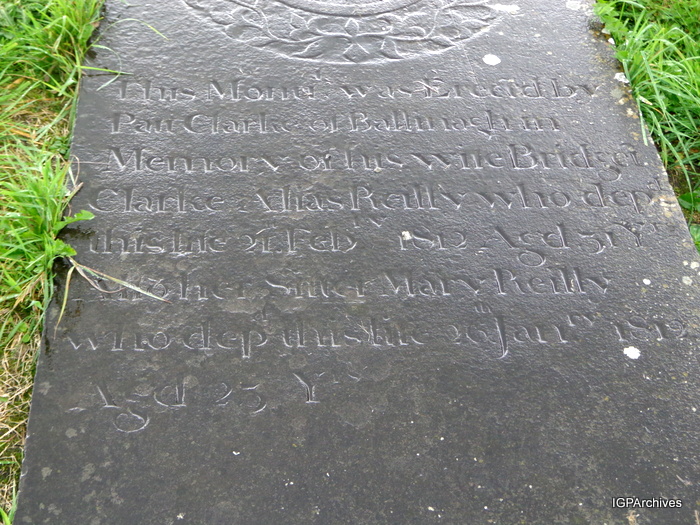 This Monu.t was Erect'd by
Patt Clarke of Ballinagh in
Memory of his wife Bridget
Clarke Alias Reilly who dep.d
this life 21 Feb.ry 1812 Agd 31 Yrs
Also her Sister Mary Reilly
who depd this life 26th Janry 1812
Agd 25 Yrs
IGPArchives